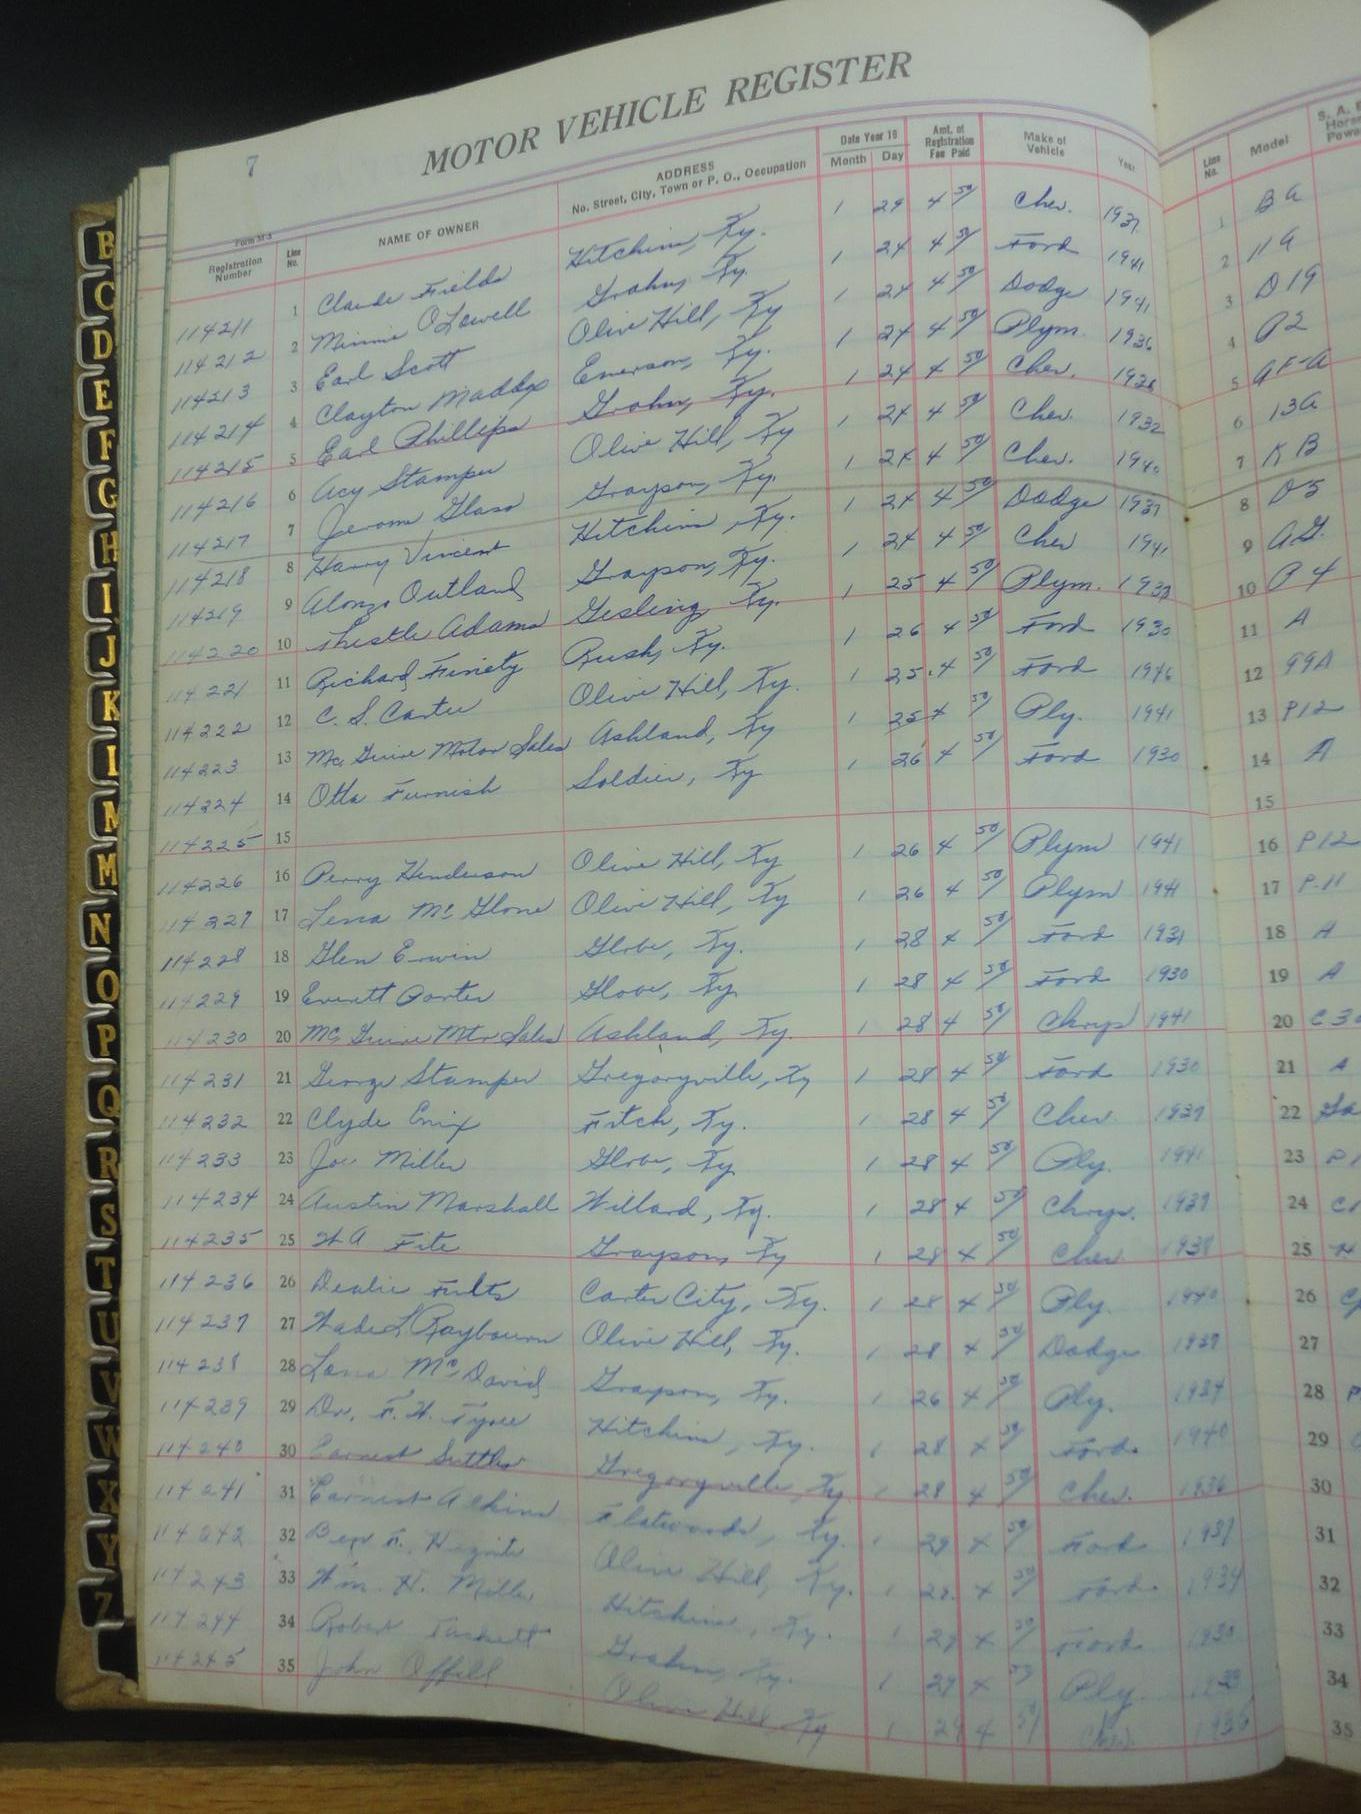 7
MOTOR VEHICLE REGISTER
Form M-3
Registration Number Line No. NAME OF OWNER ADDRESS No. Street, City, Town or P. O., Occupation Date Year 19 Month Day Amt. of Registration Fee Paid Make of Vehicle Year Line No. Model S. A. Horse Power
114211 1 Claude Fields Hitchins, Ky. 1 29 4 50 Chev. 1937 1 BA
114212 2 Minnie O'Lowell Grahn, Ky. 1 24 4 50 Ford 1941 2 11A
114213 3 Earl Scott Olive Hill, Ky 1 24 4 50 Dodge 1941 3 D19
114214 4 Clayton Maddox Emerson, Ky. 1 24 4 50 Plym. 1936 4 P2
114215 5 Earl Phillips Grahn, Ky. 1 24 4 50 Chev. 5
114216 6 Acy Stamper Olive Hill, Ky 1 24 4 50 Chev. 1932 6 13A
114217 7 Jerome Glass Grayson, Ky. 1 24 4 50 Chev. 1940 7 KB
114218 8 Harry Vincent Hitchins Ky. 1 24 4 50 Dodge 1937 8 D5
114219 9 Alonzo Outland Grayson, Ky. 1 24 4 50 Chev 1941 9 AG.
114220 10 Thistle Adams Gesling, Ky. 1 25 4 50 Plym. 10 P4
114221 11 Richard Rush, Ky. 1 26 4 50 Ford 1930 11 A
114222 12 C. S. Carter Olive Hill, Ky. 1 25. 4 50 Ford 1946 12 99A
114223 13 McGuire Motor Sales Ashland, Ky 1 25 4 50 Ply. 1941 13 P12
114224 14 Otta Furnish Soldier, Ky 1 26 4 50 Ford 1930 14 A
114225 15 15
114226 16 Perry Henderson Olive Hill, Ky 1 26 4 50 Plym 1941 16 P12
114227 17 Lena McGlone Olive Hill, Ky 1 26 4 50 Plym 1941 17 P-11
114228 18 Glen Erwin Globe, Ky. 1 28 4 50 Ford 1931 18 A
114229 19 Everett Porter Globe, Ky. 1 28 4 50 Ford 1930 19 A
114230 20 McGuire Mtr Sales Ashland, Ky. 1 28 4 50 Chrys 1941 20
114231 21 George Stamper Gregoryville, Ky 1 28 4 50 Ford 1930 21 A
114232 22 Clyde Enix Fitch, Ky. 1 28 4 50 Chev. 1937 22
114233 23 Joe Miller Globe, Ky 1 28 4 50 Ply. 1941 23
114234 24 Austin Marshall Willard, Ky. 1 28 4 50 Chrys. 1937 24
114235 25 Fite Grayson, Ky 1 28 4 50 Chev. 1938 25
114236 26 Fults Carter City, Ky. 1 28 4 50 Ply. 1940 26
114237 27 Wade L Raybourn Olive Hill, Ky. 1 28 4 50 Dodge 27
114238 28 McDavid Grayson, Ky. 1 26 4 50 Ply. 1934 28
114239 29 Dr. Hitchins, Ky. 1 28 4 50 Ford 1940 29
114240 30 Earnest Suttles Gregoryville, Ky. 1 28 4 50 Chev. 1936 30
114241 31 Earnest Adkins Flatwoods, Ky. 1 29 4 50 Ford 1937 31
114242 32 Olive Hill, Ky. 1 29. 4 50 Ford 1934 32
114243 33 Wm. H. Miller Hitchins, Ky. 1 29 4 50 Ford 33
114244 34 Robert Tackett Grahn, Ky. 1 29 4 50 Ply. 34
114245 35 John Offill Olive Hill Ky 1 29 4 50 Chev. 1936 35
B
C
D
E
F
G
H
I
J
K
L
M
M
N
O
P
Q
R
S
T
U
V
W
X
Y
Z